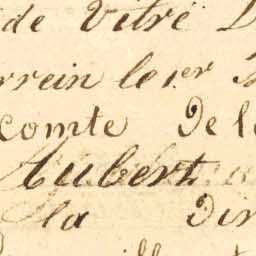 de Vitré
rrein le 1er
comte de l
Aubert
la dir